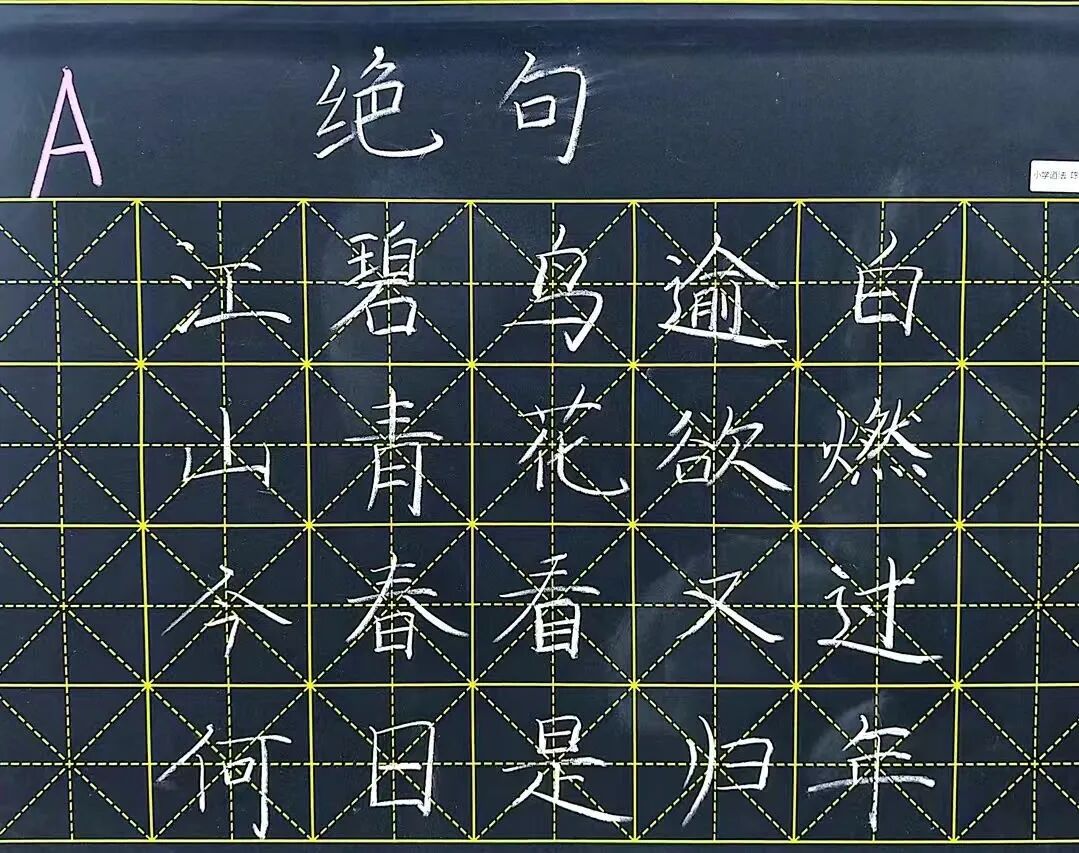 A
绝句
小学道法
江碧鸟逾白
山青花欲燃
今春看又过
何日是归年